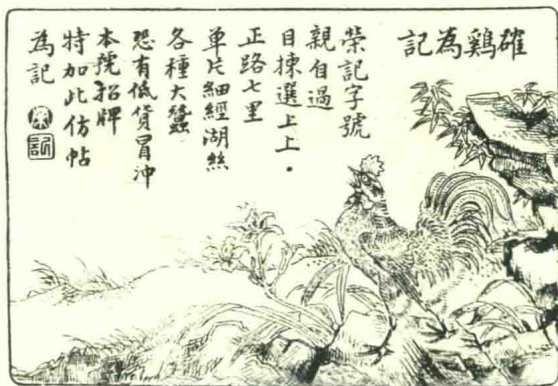 確鷄為
記
榮記字號
親自過
目揀選上上.
正路七里
单片細經湖絲
各種大蠶
恐有低貨冒冲
本號招牌
特加此仿帖
為記
榮
記